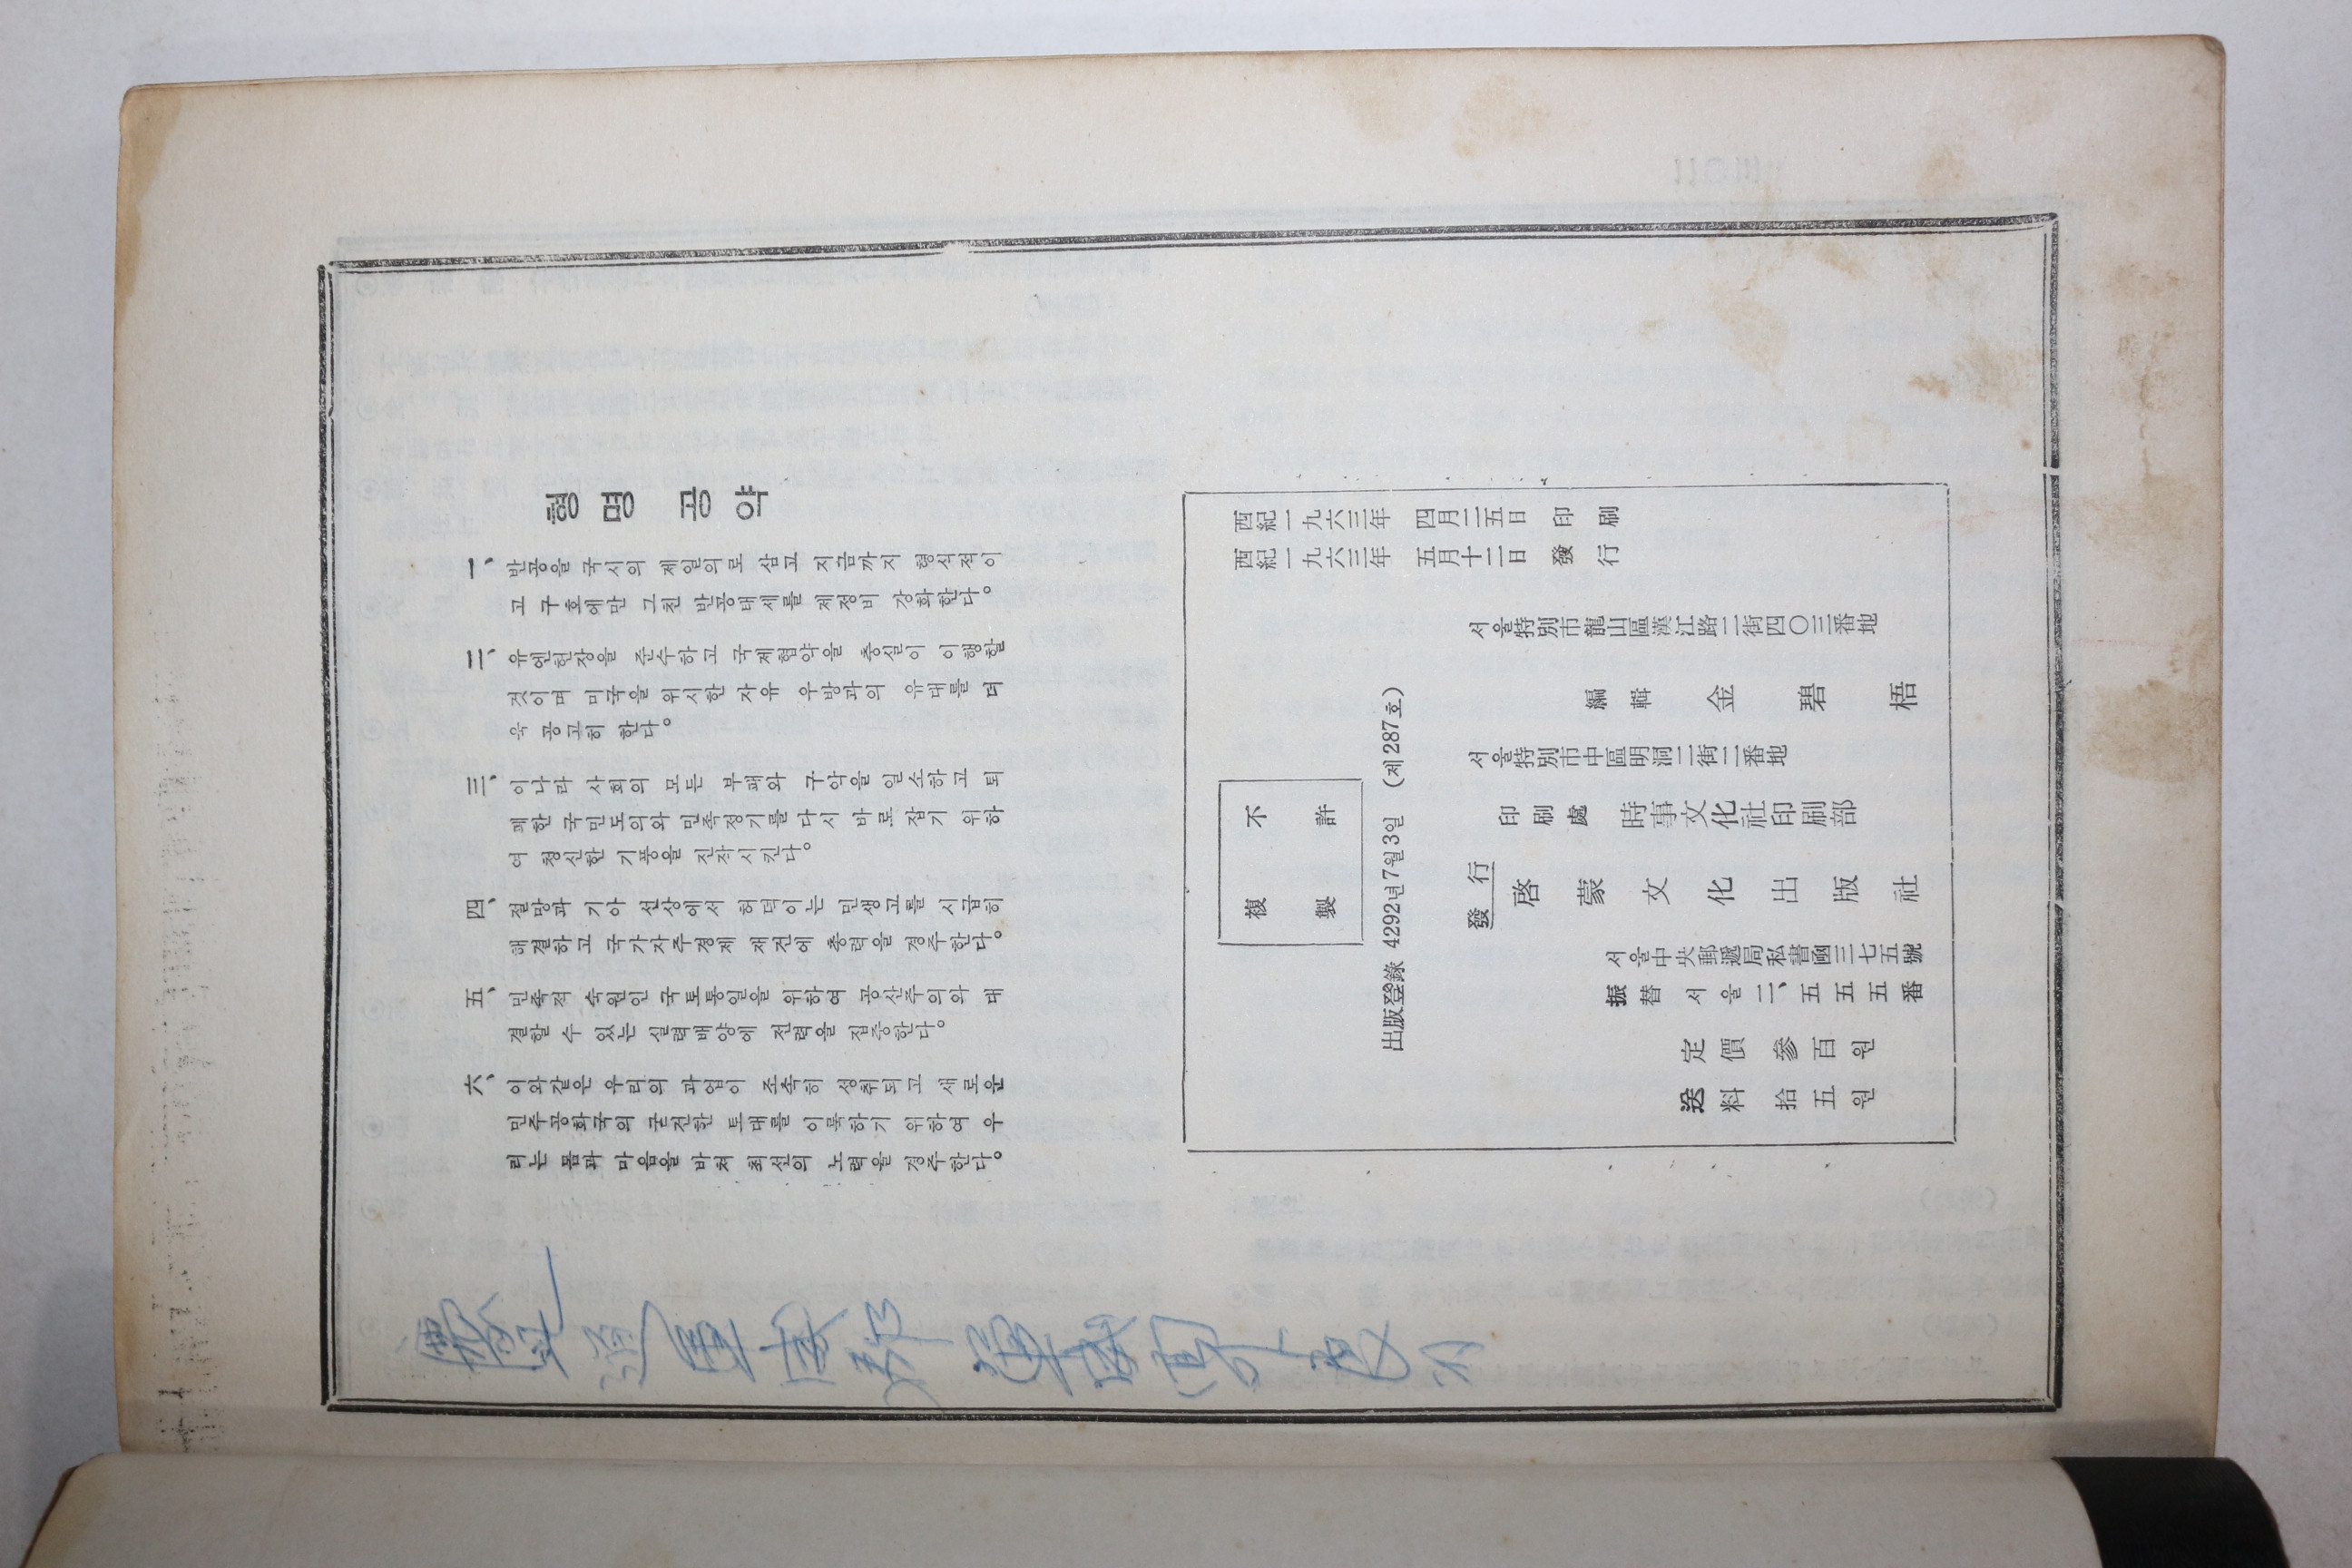 혁명 공약
一、반공을 국시의 제일의로 삼고 지금까지 형식적이
고 구호에만 그친 반공태세를 제정비 강화한다。
二、유엔헌장을 준수하고 국제협약을 충실이 이행할
것이며 미국을 위시한 자유 우방과의 유대를 더
욱 공고히 한다。
三、이나라 사회의 모든 부패와 구악을 일소하고 퇴
폐한 국민도의와 민족정기를 다시 바로 잡기 위하
여 청신한 기풍을 진작시킨다。
四、절망과 기아 선상에서 허덕이는 민생고를 시급히
해결하고 국가자주경제 재건에 총력을 경주한다。
五、민족적 숙원인 국토통일을 위하여 공산주의와 대
결할 수 있는 실력배양에 전력을 집중한다。
六、이와같은 우리의 과업이 조속히 성취되고 새로운
민주공화국의 굳건한 토대를 이룩하기 위하여 우
리는 몸과 마음을 바쳐 최선의 노력을 경주한다。
西紀一九六三年 四月二五日 印刷
西紀一九六三年 五月十二日 發行
不許
複製
出版登錄 4292년7월3일 (제287호)
서울特別市龍山區漢江路二街四〇三番地
編輯 金碧梧
서울特別市中區明洞二街二番地
印刷處 時事文化社印刷部
發行 啓蒙文化出版社
서울中央郵遞局私書函三七五號
振替 서울 二、五五五番
定價 參百원
送料 拾五원